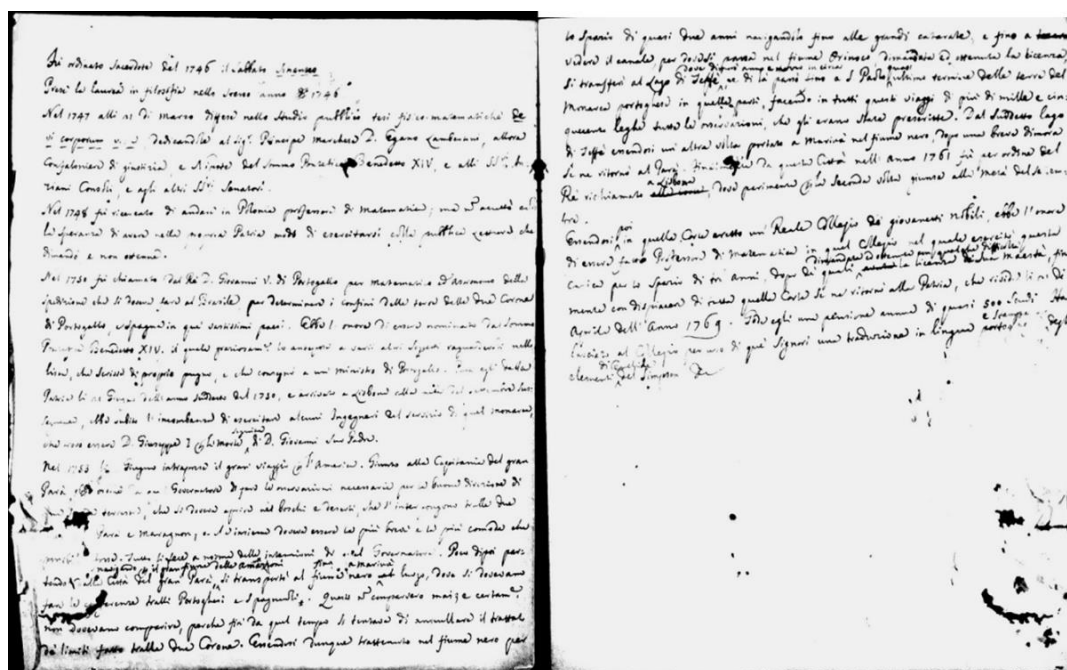 Fui ordinato Sacerdote del 1746 il Sabbato
Presi la laurea in filosofia nello stesso anno 1746
Nel 1747 alli 21 di Marzo difesi nello Studio pubblico tesi fisico-matematiche de
vi corporum v. v. Dedicandole al Sigr. Principe Marchese D. Egano Lambertini, allora
Confaloniere di giustizia, e Nipote del Sommo Pontefice Benedetto XIV, e alli SSri. An-
ziani Consoli, e agli altri SSri. Senatori.
Nel 1748 fui ricercato di andare in Polonia professore di matematica; ma accettò
la speranza di avere nella propria Patria modo di esercitarsi colla pubblica Lettura che
dimandò e non ottenne.
Nel 1750 fui chiamato dal Re D. Giovanni V. di Portogallo per Matematico d'Astronomo della
spedizione che si dovea fare al Brasile per determinare i confini delle terre delle due Corone
di Portogallo, e Spagna in quei vastissimi paesi. Ebbe l'onore di essere nominato dal Sommo
Pontefice Benedetto XIV. il quale lo antepose a varii altri Soggetti nella
lista, che scrisse di proprio pugno, e che consegnò a un ministro di Portogallo. egli dalla
Patria li Giugno dell'anno suddetto del 1750, e arrivato a Lisbona alla metà del settembre sus-
seguente, ebbe subito l'incombenza di esercitare alcuni Ingegneri del servizio di quel monarca,
che era D. Giuseppe I per la morte seguita di D. Giovanni suo Padre.
Nel 1753 li Giugno intraprese il gran viaggio per l'America. Giunto alla Capitania del gran
Parà, Governatore di fare le osservazioni necessarie per la buona direzione di
terreno, che si dovea aprire nei boschi e deserti, che s'interpongono tralle due
Parà e Maragnon, e dovea essere la più breve e la più comoda che
Tutto si fece a norma delle intenzioni di quel Governatore. Poco dipoi par-
navigando per il gran fiume delle Amazoni fino a Marivà
tendo dalla Città del gran Parà, si trasportò al fiume nero nel luogo, dove si dovevano
fare le conferenze tralli Portoghesi e Spagnuoli. Questi non comparvero mai, e certamte.
non dovevano comparire, perche fin da quel tempo si tentava di annullare il trattato
de' limiti fatto tralle due Corone. Essendosi dunque trattenuto nel fiume nero per
lo spazio di quasi due anni navigandolo fino alle grandi catarate, e fino a
vedere il canale, per donde si passa nel fiume Orinoco dimandata ed ottenuta la licenza,
dove dipoi
si transferì al Lago di Teffè, e di là passò sino a S. Paolo, ultimo termine delle terre del
Monarca portoghese in quelle parti, facendo in tutti questi viaggi di più di mille e cin-
quecento leghe tutte le osservazioni, che gli erano state prescritte. Dal suddetto lago
di Teffè essendosi un'altra volta portato a Marivà nel fiume nero, dopo una breve dimora
se ne ritornò al Parà, Da questa Città nell'Anno 1761 fu per ordine del
a Lisbona
Re richiamato dove parimente per la seconda volta giunse alla metà del
bre.
poi
Essendosi in quella Corte eretto un Reale Collegio de' giovanetti Nobili, ebbe l'onore
di essere fatto Professore di Matematica in quel Collegio nel quale esercitò questa
dimandata ed ottenuta non qualche difficoltà
Carica per lo spazio di tre anni, dopo de' quali, la licenza di sua Maestà, final-
mente con dispiacere di tutta quella Corte se ne ritornò alla Patria, che rividde li 21 di
Aprile dell'Anno 1769. Gode egli una pensione annua di quasi 500 Scudi Ha
e stampata
lasciato al Collegio per uso di que' Signori una traduzione in lingua portoghese degli
di Geometria
elementi del Simpson &c